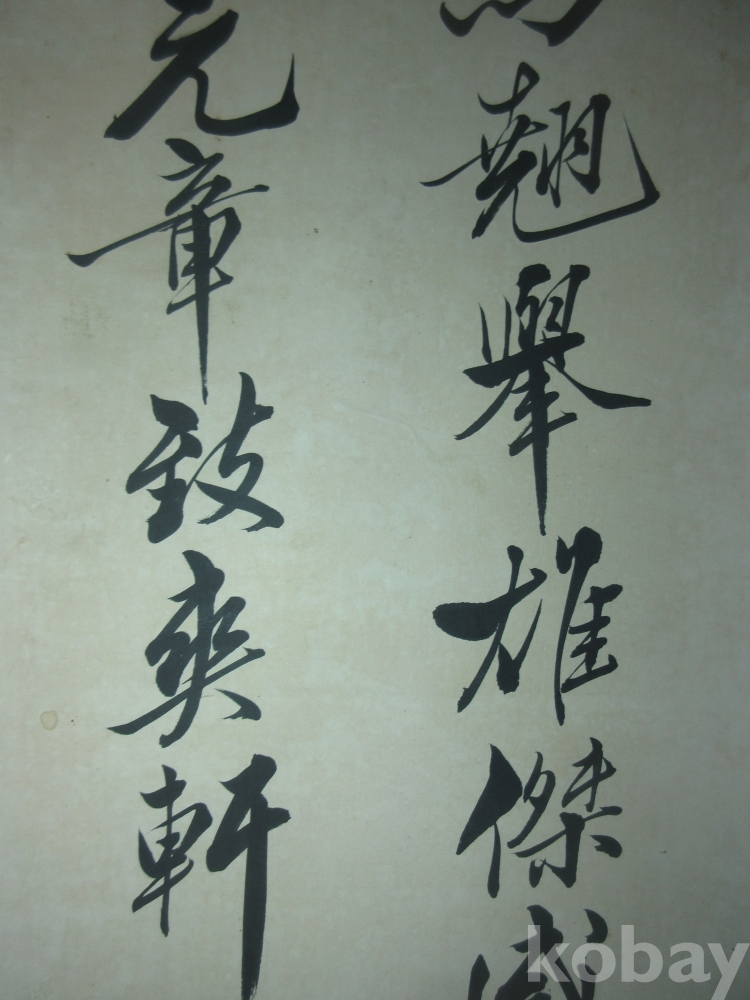 翹舉雄傑
元章致爽軒
kobay